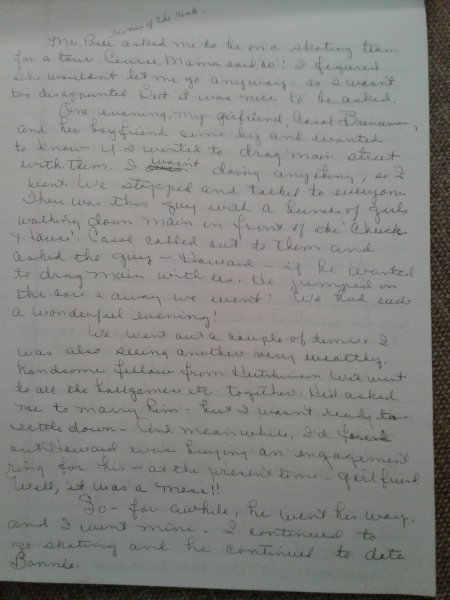 owner of the rink -
Mr. Rice asked me to be on a skating team
for a tour. Course Mama said, no"! I figured
she wouldn't let me go anyway - so I wasn't
too disappointed. But it was nice to be asked.
One evening, my girlfriend, Carol Brenaman,
and her boyfriend came by and wanted
to know if I wanted to drag main street
with them. I wasn't doing anything, so I
went. We stopped and talked to everyone
There was this guy with a bunch of girls
walking down Main in front of the "Chuck
House". Carol called out to them and
asked the guy - Howard - if he wanted
to drag Main with us. He jumped in
the car & away we went! We had such
a wonderful evening!
We went out a couple of times. I
was also seeing another very wealthy,
handsome fellow from Hutchinson. We'd went
to all the ballgames etc. together. He'd asked
me to marry him - but I wasn't ready to
settle down - And meanwhile, I'd found
out Howard was buying an engagement
ring for his - at the present time - girlfriend.
Well, it was a mess!!
So - for awhile, he went his way,
and I went mine. I continued to
go skating and he continued to date
Bonnie.